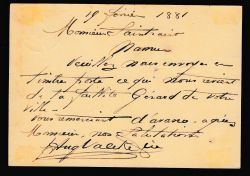 19 février 1881
Monsieur
Namur
Veuillez nous envoyer en
timbre poste ce qui nous revient
de la faillite Gérard de votre
ville.
Vous remerciant d'avance, agréez
Monsieur, nos Salutations